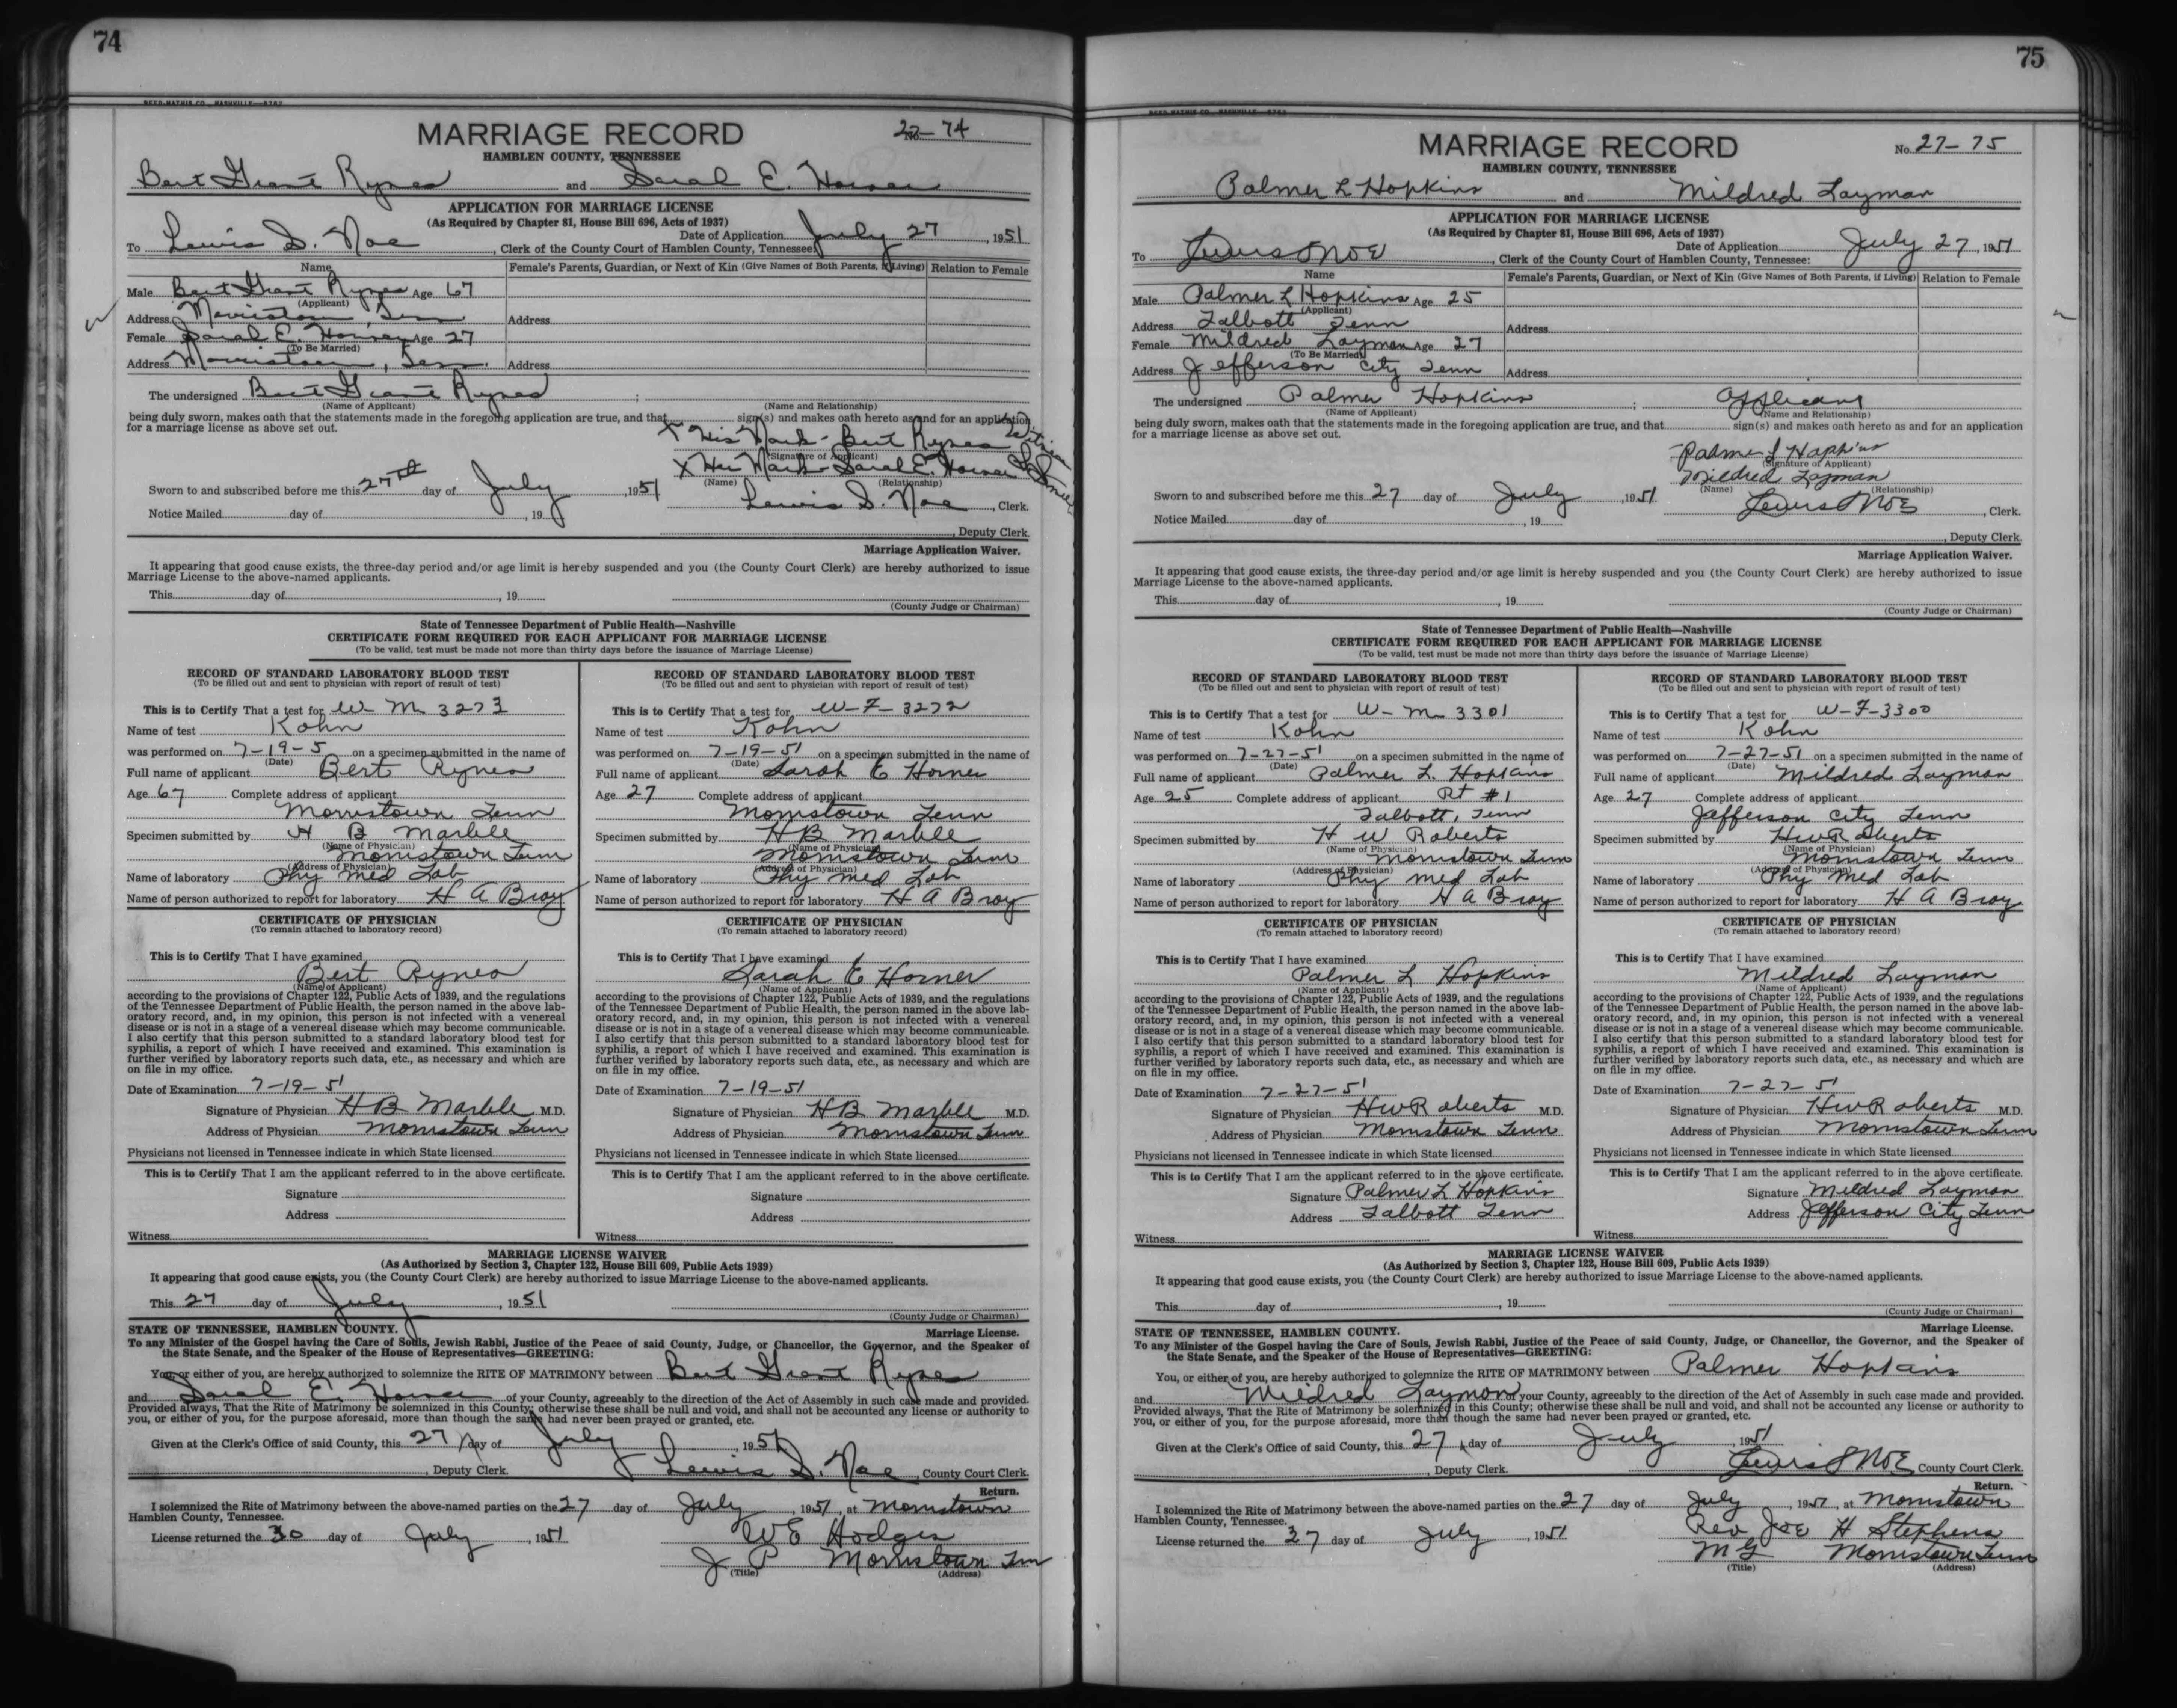 74
MARRIAGE RECORD
27-74
HAMBLEN COUNTY, TENNESSEE
Bert Grant Rynes and Sarah E. Horner
APPLICATION FOR MARRIAGE LICENSE
(As Required by Chapter 81, House Bill 696, Acts of 1937)
Date of Application July 27, 1951
To Lewis S. Noe, Clerk of the County Court of Hamblen County, Tennessee:
Name Female's Parents, Guardian, or Next of Kin (Give Names of Both Parents, if Living) Relation to Female
Male Bert Grant Rynes Age 67
(Applicant)
Address Morristown, Tenn Address
Female Sarah E. Horner Age 27
(To Be Married)
Address Morristown, Tenn. Address
The undersigned Bert Grant Rynes ;
(Name of Applicant) (Name and Relationship)
being duly sworn, makes oath that the statements made in the foregoing application are true, and that sign(s) and makes oath hereto as and for an application
for a marriage license as above set out.
X His Mark - Bert Rynes Witness
(Signature of Applicant)
X Her Mark - Sarah E. Horner
(Name) (Relationship)
Sworn to and subscribed before me this 27th day of July, 1951
Lewis S. Noe, Clerk.
Notice Mailed day of , 19
, Deputy Clerk.
Marriage Application Waiver.
It appearing that good cause exists, the three-day period and/or age limit is hereby suspended and you (the County Court Clerk) are hereby authorized to issue
Marriage License to the above-named applicants.
This day of , 19
(County Judge or Chairman)
State of Tennessee Department of Public Health—Nashville
CERTIFICATE FORM REQUIRED FOR EACH APPLICANT FOR MARRIAGE LICENSE
(To be valid, test must be made not more than thirty days before the issuance of Marriage License)
RECORD OF STANDARD LABORATORY BLOOD TEST
(To be filled out and sent to physician with report of result of test)
This is to Certify That a test for W M 3273
Name of test Kohn
was performed on 7-19-5 on a specimen submitted in the name of
(Date)
Full name of applicant Bert Rynes
Age 67 Complete address of applicant
Morristown Tenn
Specimen submitted by H B Marble
(Name of Physician)
Morristown Tenn
(Address of Physician)
Name of laboratory Phy Med Lab
Name of person authorized to report for laboratory H A Bray
CERTIFICATE OF PHYSICIAN
(To remain attached to laboratory record)
This is to Certify That I have examined
Bert Rynes
(Name of Applicant)
according to the provisions of Chapter 122, Public Acts of 1939, and the regulations
of the Tennessee Department of Public Health, the person named in the above lab-
oratory record, and, in my opinion, this person is not infected with a venereal
disease or is not in a stage of a venereal disease which may become communicable.
I also certify that this person submitted to a standard laboratory blood test for
syphilis, a report of which I have received and examined. This examination is
further verified by laboratory reports such data, etc., as necessary and which are
on file in my office.
Date of Examination 7-19-51
Signature of Physician H B Marble M.D.
Address of Physician Morristown Tenn
Physicians not licensed in Tennessee indicate in which State licensed
This is to Certify That I am the applicant referred to in the above certificate.
Signature
Address
Witness
RECORD OF STANDARD LABORATORY BLOOD TEST
(To be filled out and sent to physician with report of result of test)
This is to Certify That a test for W-F-3272
Name of test Kohn
was performed on 7-19-51 on a specimen submitted in the name of
(Date)
Full name of applicant Sarah E Horner
Age 27 Complete address of applicant
Morristown Tenn
Specimen submitted by H B Marble
(Name of Physician)
Morristown Tenn
(Address of Physician)
Name of laboratory Phy Med Lab
Name of person authorized to report for laboratory H A Bray
CERTIFICATE OF PHYSICIAN
(To remain attached to laboratory record)
This is to Certify That I have examined
Sarah E Horner
(Name of Applicant)
according to the provisions of Chapter 122, Public Acts of 1939, and the regulations
of the Tennessee Department of Public Health, the person named in the above lab-
oratory record, and, in my opinion, this person is not infected with a venereal
disease or is not in a stage of a venereal disease which may become communicable.
I also certify that this person submitted to a standard laboratory blood test for
syphilis, a report of which I have received and examined. This examination is
further verified by laboratory reports such data, etc., as necessary and which are
on file in my office.
Date of Examination 7-19-51
Signature of Physician H B Marble M.D.
Address of Physician Morristown Tenn
Physicians not licensed in Tennessee indicate in which State licensed
This is to Certify That I am the applicant referred to in the above certificate.
Signature
Address
Witness
MARRIAGE LICENSE WAIVER
(As Authorized by Section 3, Chapter 122, House Bill 609, Public Acts 1939)
It appearing that good cause exists, you (the County Court Clerk) are hereby authorized to issue Marriage License to the above-named applicants.
This 27 day of July, 1951
(County Judge or Chairman)
STATE OF TENNESSEE, HAMBLEN COUNTY. Marriage License.
To any Minister of the Gospel having the Care of Souls, Jewish Rabbi, Justice of the Peace of said County, Judge, or Chancellor, the Governor, and the Speaker of
the State Senate, and the Speaker of the House of Representatives—GREETING:
You, or either of you, are hereby authorized to solemnize the RITE OF MATRIMONY between Bert Grant Rynes
and Sarah E. Horner of your County, agreeably to the direction of the Act of Assembly in such case made and provided.
Provided always, That the Rite of Matrimony be solemnized in this County; otherwise these shall be null and void, and shall not be accounted any license or authority to
you, or either of you, for the purpose aforesaid, more than though the same had never been prayed or granted, etc.
Given at the Clerk's Office of said County, this 27 day of July, 1951
, Deputy Clerk. Lewis S. Noe, County Court Clerk.
Return.
I solemnized the Rite of Matrimony between the above-named parties on the 27 day of July, 1951, at Morristown
Hamblen County, Tennessee.
License returned the 30 day of July, 1951 W E Hodges
J P Morristown Tenn
(Title) (Address)
75
MARRIAGE RECORD
No. 27-75
HAMBLEN COUNTY, TENNESSEE
Palmer L Hopkins and Mildred Layman
APPLICATION FOR MARRIAGE LICENSE
(As Required by Chapter 81, House Bill 696, Acts of 1937)
Date of Application July 27, 1951
To Lewis S Noe, Clerk of the County Court of Hamblen County, Tennessee:
Name Female's Parents, Guardian, or Next of Kin (Give Names of Both Parents, if Living) Relation to Female
Male Palmer L Hopkins Age 25
(Applicant)
Address Talbott Tenn Address
Female Mildred Layman Age 27
(To Be Married)
Address Jefferson City Tenn Address
The undersigned Palmer Hopkins ; Applicant
(Name of Applicant) (Name and Relationship)
being duly sworn, makes oath that the statements made in the foregoing application are true, and that sign(s) and makes oath hereto as and for an application
for a marriage license as above set out.
Palmer L Hopkins
(Signature of Applicant)
Mildred Layman
(Name) (Relationship)
Sworn to and subscribed before me this 27 day of July, 1951
Lewis S Noe, Clerk.
Notice Mailed day of , 19
, Deputy Clerk.
Marriage Application Waiver.
It appearing that good cause exists, the three-day period and/or age limit is hereby suspended and you (the County Court Clerk) are hereby authorized to issue
Marriage License to the above-named applicants.
This day of , 19
(County Judge or Chairman)
State of Tennessee Department of Public Health—Nashville
CERTIFICATE FORM REQUIRED FOR EACH APPLICANT FOR MARRIAGE LICENSE
(To be valid, test must be made not more than thirty days before the issuance of Marriage License)
RECORD OF STANDARD LABORATORY BLOOD TEST
(To be filled out and sent to physician with report of result of test)
This is to Certify That a test for W-M 3301
Name of test Kohn
was performed on 7-27-51 on a specimen submitted in the name of
(Date)
Full name of applicant Palmer L. Hopkins
Age 25 Complete address of applicant Rt #1
Talbott, Tenn
Specimen submitted by H W Roberts
(Name of Physician)
Morristown Tenn
(Address of Physician)
Name of laboratory Phy Med Lab
Name of person authorized to report for laboratory H A Bray
CERTIFICATE OF PHYSICIAN
(To remain attached to laboratory record)
This is to Certify That I have examined
Palmer L Hopkins
(Name of Applicant)
according to the provisions of Chapter 122, Public Acts of 1939, and the regulations
of the Tennessee Department of Public Health, the person named in the above lab-
oratory record, and, in my opinion, this person is not infected with a venereal
disease or is not in a stage of a venereal disease which may become communicable.
I also certify that this person submitted to a standard laboratory blood test for
syphilis, a report of which I have received and examined. This examination is
further verified by laboratory reports such data, etc., as necessary and which are
on file in my office.
Date of Examination 7-27-51
Signature of Physician H W Roberts M.D.
Address of Physician Morristown Tenn
Physicians not licensed in Tennessee indicate in which State licensed
This is to Certify That I am the applicant referred to in the above certificate.
Signature Palmer L Hopkins
Address Talbott Tenn
Witness
RECORD OF STANDARD LABORATORY BLOOD TEST
(To be filled out and sent to physician with report of result of test)
This is to Certify That a test for W-F-3300
Name of test Kohn
was performed on 7-27-51 on a specimen submitted in the name of
(Date)
Full name of applicant Mildred Layman
Age 27 Complete address of applicant
Jefferson City Tenn
Specimen submitted by H W Roberts
(Name of Physician)
Morristown Tenn
(Address of Physician)
Name of laboratory Phy Med Lab
Name of person authorized to report for laboratory H A Bray
CERTIFICATE OF PHYSICIAN
(To remain attached to laboratory record)
This is to Certify That I have examined
Mildred Layman
(Name of Applicant)
according to the provisions of Chapter 122, Public Acts of 1939, and the regulations
of the Tennessee Department of Public Health, the person named in the above lab-
oratory record, and, in my opinion, this person is not infected with a venereal
disease or is not in a stage of a venereal disease which may become communicable.
I also certify that this person submitted to a standard laboratory blood test for
syphilis, a report of which I have received and examined. This examination is
further verified by laboratory reports such data, etc., as necessary and which are
on file in my office.
Date of Examination 7-27-51
Signature of Physician H W Roberts M.D.
Address of Physician Morristown Tenn
Physicians not licensed in Tennessee indicate in which State licensed
This is to Certify That I am the applicant referred to in the above certificate.
Signature Mildred Layman
Address Jefferson City Tenn
Witness
MARRIAGE LICENSE WAIVER
(As Authorized by Section 3, Chapter 122, House Bill 609, Public Acts 1939)
It appearing that good cause exists, you (the County Court Clerk) are hereby authorized to issue Marriage License to the above-named applicants.
This day of , 19
(County Judge or Chairman)
STATE OF TENNESSEE, HAMBLEN COUNTY. Marriage License.
To any Minister of the Gospel having the Care of Souls, Jewish Rabbi, Justice of the Peace of said County, Judge, or Chancellor, the Governor, and the Speaker of
the State Senate, and the Speaker of the House of Representatives—GREETING:
You, or either of you, are hereby authorized to solemnize the RITE OF MATRIMONY between Palmer Hopkins
and Mildred Layman of your County, agreeably to the direction of the Act of Assembly in such case made and provided.
Provided always, That the Rite of Matrimony be solemnized in this County; otherwise these shall be null and void, and shall not be accounted any license or authority to
you, or either of you, for the purpose aforesaid, more than though the same had never been prayed or granted, etc.
Given at the Clerk's Office of said County, this 27 day of July, 1951
, Deputy Clerk. Lewis S Noe County Court Clerk.
Return.
I solemnized the Rite of Matrimony between the above-named parties on the 27 day of July, 1951, at Morristown
Hamblen County, Tennessee.
License returned the 37 day of July, 1951 Rev Joe H Stephens
M G Morristown Tenn
(Title) (Address)